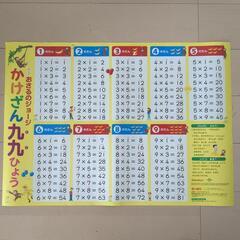 おさるのジョージ
かけざん九九ひょう
1 のだん
1 × 1 = 1
1 × 2 = 2
1 × 3 = 3
1 × 4 = 4
1 × 5 = 5
1 × 6 = 6
1 × 7 = 7
1 × 8 = 8
1 × 9 = 9
2 のだん
2 × 1 = 2
2 × 2 = 4
2 × 3 = 6
2 × 4 = 8
2 × 5 = 10
2 × 6 = 12
2 × 7 = 14
2 × 8 = 16
2 × 9 = 18
3 のだん
3 × 1 = 3
3 × 2 = 6
3 × 3 = 9
3 × 4 = 12
3 × 5 = 15
3 × 6 = 18
3 × 7 = 21
3 × 8 = 24
3 × 9 = 27
4 のだん
4 × 1 = 4
4 × 2 = 8
4 × 3 = 12
4 × 4 = 16
4 × 5 = 20
4 × 6 = 24
4 × 7 = 28
4 × 8 = 32
4 × 9 = 36
5 のだん
5 × 1 = 5
5 × 2 = 10
5 × 3 = 15
5 × 4 = 20
5 × 5 = 25
5 × 6 = 30
5 × 7 = 35
5 × 8 = 40
5 × 9 = 45
6 のだん
6 × 1 = 6
6 × 2 = 12
6 × 3 = 18
6 × 4 = 24
6 × 5 = 30
6 × 6 = 36
6 × 7 = 42
6 × 8 = 48
6 × 9 = 54
7 のだん
7 × 1 = 7
7 × 2 = 14
7 × 3 = 21
7 × 4 = 28
7 × 5 = 35
7 × 6 = 42
7 × 7 = 49
7 × 8 = 56
7 × 9 = 63
8 のだん
8 × 1 = 8
8 × 2 = 16
8 × 3 = 24
8 × 4 = 32
8 × 5 = 40
8 × 6 = 48
8 × 7 = 56
8 × 8 = 64
8 × 9 = 72
9 のだん
9 × 1 = 9
9 × 2 = 18
9 × 3 = 27
9 × 4 = 36
9 × 5 = 45
9 × 6 = 54
9 × 7 = 63
9 × 8 = 72
9 × 9 = 81